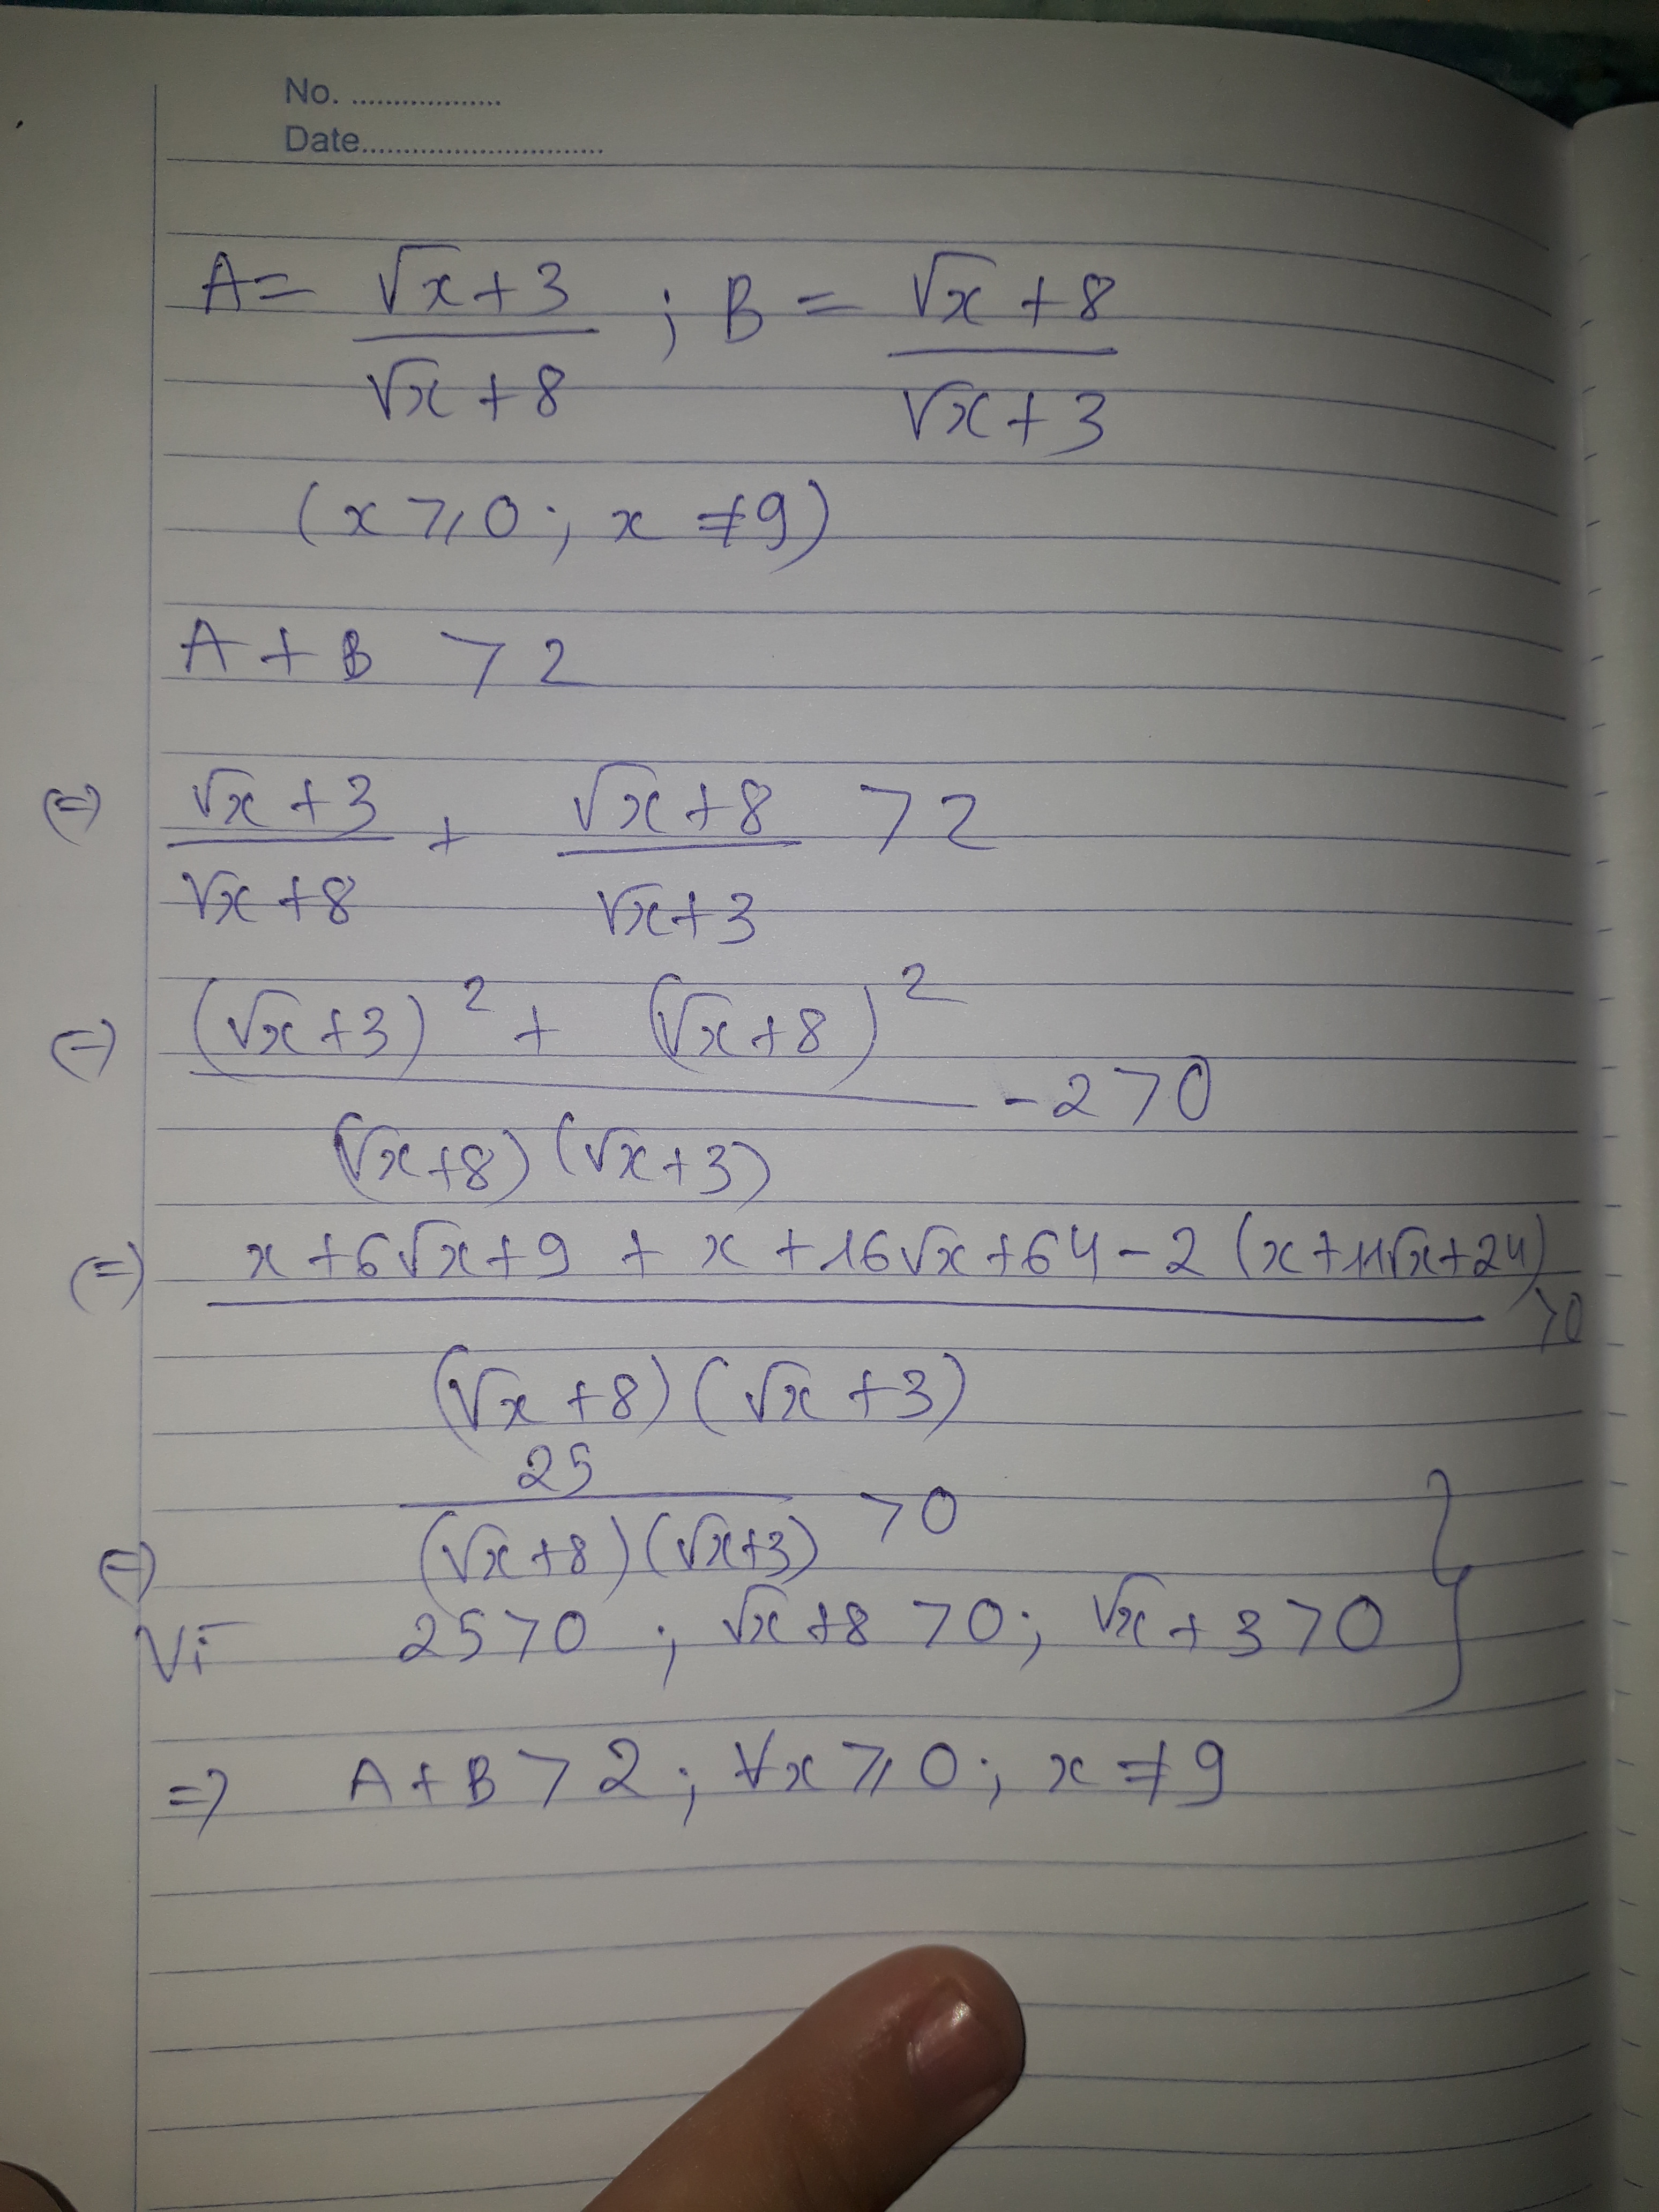 No. ..................
Date.............................
A = (√x + 3)/(√x + 8) ; B = (√x + 8)/(√x + 3)
(x ⩾ 0 ; x ≠ 9)
A + B > 2
(=) (√x + 3)/(√x + 8) + (√x + 8)/(√x + 3) > 2
(=) ((√x + 3)² + (√x + 8)²)/((√x + 8)(√x + 3)) - 2 > 0
(=) (x + 6√x + 9 + x + 16√x + 64 - 2(x + 11√x + 24))/((√x + 8)(√x + 3)) > 0
(=) 25/((√x + 8)(√x + 3)) > 0
Vì 25 > 0 ; √x + 8 > 0 ; √x + 3 > 0 }
=> A + B > 2 ; ∀x ⩾ 0 ; x ≠ 9